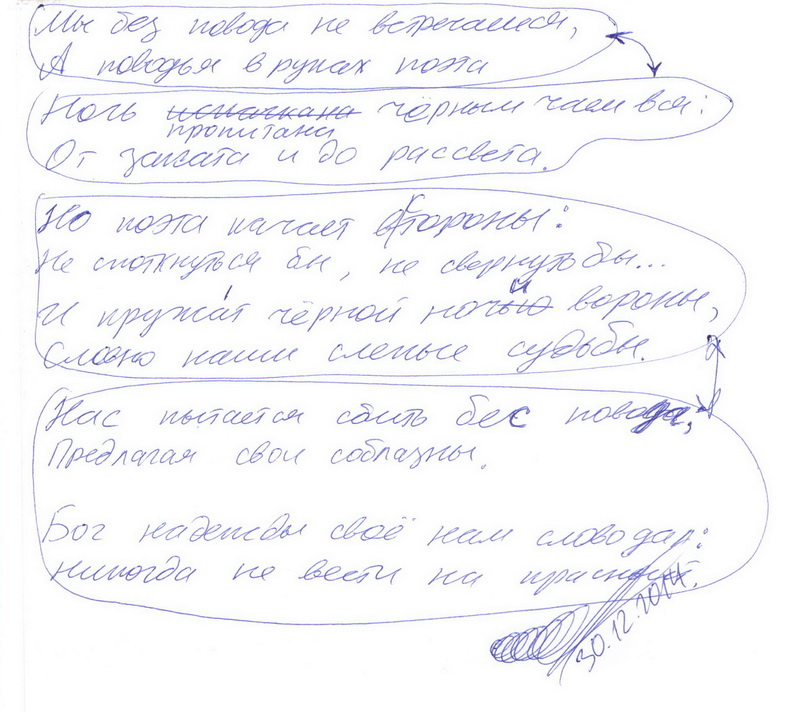 Мы без повода не встречаемся,
А поводья в руках поэта
Ночь испачкана чёрным чаем вся:
пропитана
От заката и до рассвета.
Но поэта качает в стороны:
Не споткнуться бы, не свернуть бы...
И кружат чёрной ночью вороны,
Словно наши слепые судьбы.
Нас пытается сбить бес повода,
Предлагая свои соблазны.
Бог надежды своё нам слово дал:
Никогда не вести на красный.
30.12.2014